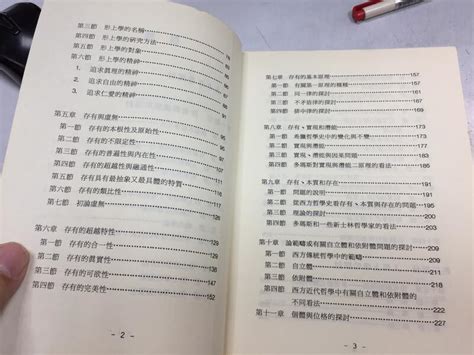 第三節 形上學的名稱
第四節 形上學的研究方法 76
第五節 形上學的對象
第六節 形上學的精神
1. 追求真理的精神
2. 追求自由的精神
3. 追求仁愛的精神
第五章 存有與虛無 91
第一節 存有的本根性及原始性 91
第二節 存有的不限定性 95
第三節 存有的普遍性與內在性
第四節 存有的超越性與融通性
第五節 存有具最抽象又最具體的特質
第六節 存有的類比性
第七節 初論虛無
第六章 存有的超越特性
第一節 存有的合一性
第二節 存有的真實性
第三節 存有的可欲性 147
第四節 存有的完美性 152
- 2 -
第七章 存有的基本原理 157
第一節 有關第一原理的種種 157
第二節 同一律的探討
第三節 不矛盾律的探討
第四節 排中律的探討
第八章 存有、實現和潛能
第一節 希臘哲學史中的變化與不變
第二節 實現與潛能
第三節 實現、潛能與因果問題
第四節 多瑪斯對實現與潛能二原理的看法
第九章 存有、本質和存在 191
第一節 問題的說明 191
第二節 從西方哲學史看存有、本質與存在的問題
第三節 理論的探討
第四節 多瑪斯和一些新士林哲學家的看法 201
第十章 論範疇或有關自立體和依附體問題的探討
第一節 西方傳統哲學中的範疇
第二節 自立體
第三節 依附體
第四節 西方近代哲學中有關自立體和依附體的
不同看法 222
第十一章 個體與位格的探討 227
- 3 -